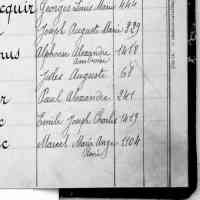 cquir Georges Louis Marie 444
Joseph Auguste Marie 829
rus Alphonse Alexandre 1468
Ambroise
Jules Auguste 68
r Paul Alexandre 241
c Emile Joseph Charles 1419
c Marcel Marie Ange 1104
René